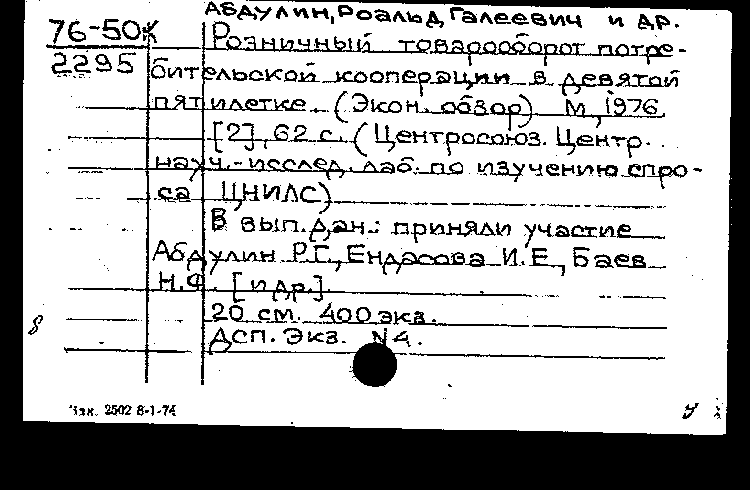 Абдулин, Роальд Галеевич и др.
76-50к
Розничный товарооборот потре-
2295
бительской кооперации в девятой
пятилетке. (Экон. обзор) М, 1976
[2], 62 с. (Центросоюз. Центр.
науч.-исслед. лаб. по изучению спро-
са ЦНИЛС)
В вып. дан.: приняли участие
Абдулин Р.Г., Ендасова И.Е., Баев
Н.Ф. [и др.].
20 см. 400 экз.
8
ДСП. Экз. N4.
Зак. 2502 8-1-74
У